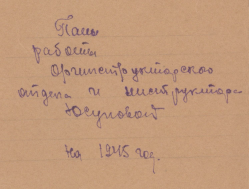 Планы
работы
Оргинструкторского
отдела и инструктора
Юсуповой
На 1945 год.